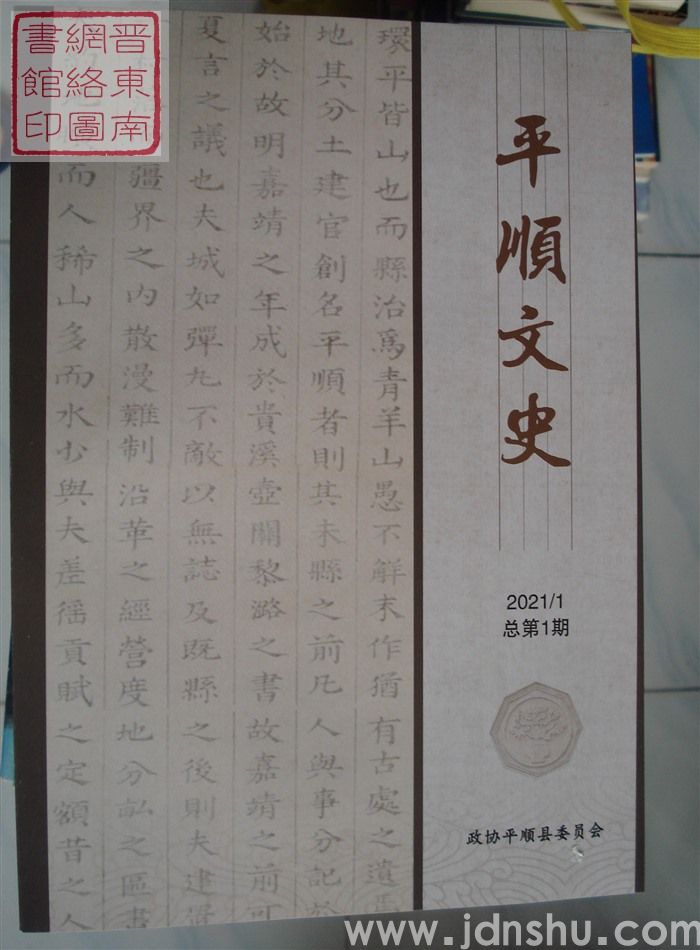 晋東南
網絡圖
書館印
平順文史
2021/1
总第1期
政协平顺县委员会
環平皆山也而縣治爲青羊山愚不解未作猶有古處之遺
地其分土建官創名平順者則其未縣之前凡人與事分記於
始於故明嘉靖之年成於貴溪壺關黎潞之書故嘉靖之前可
夏言之議也夫城如彈丸不敵以無誌及既縣之後則夫建置
疆界之内散漫難制沿革之經營度地分畝之區書
而人稀山多而水少與夫差徭貢賦之定額昔之人
www.jdnshu.com